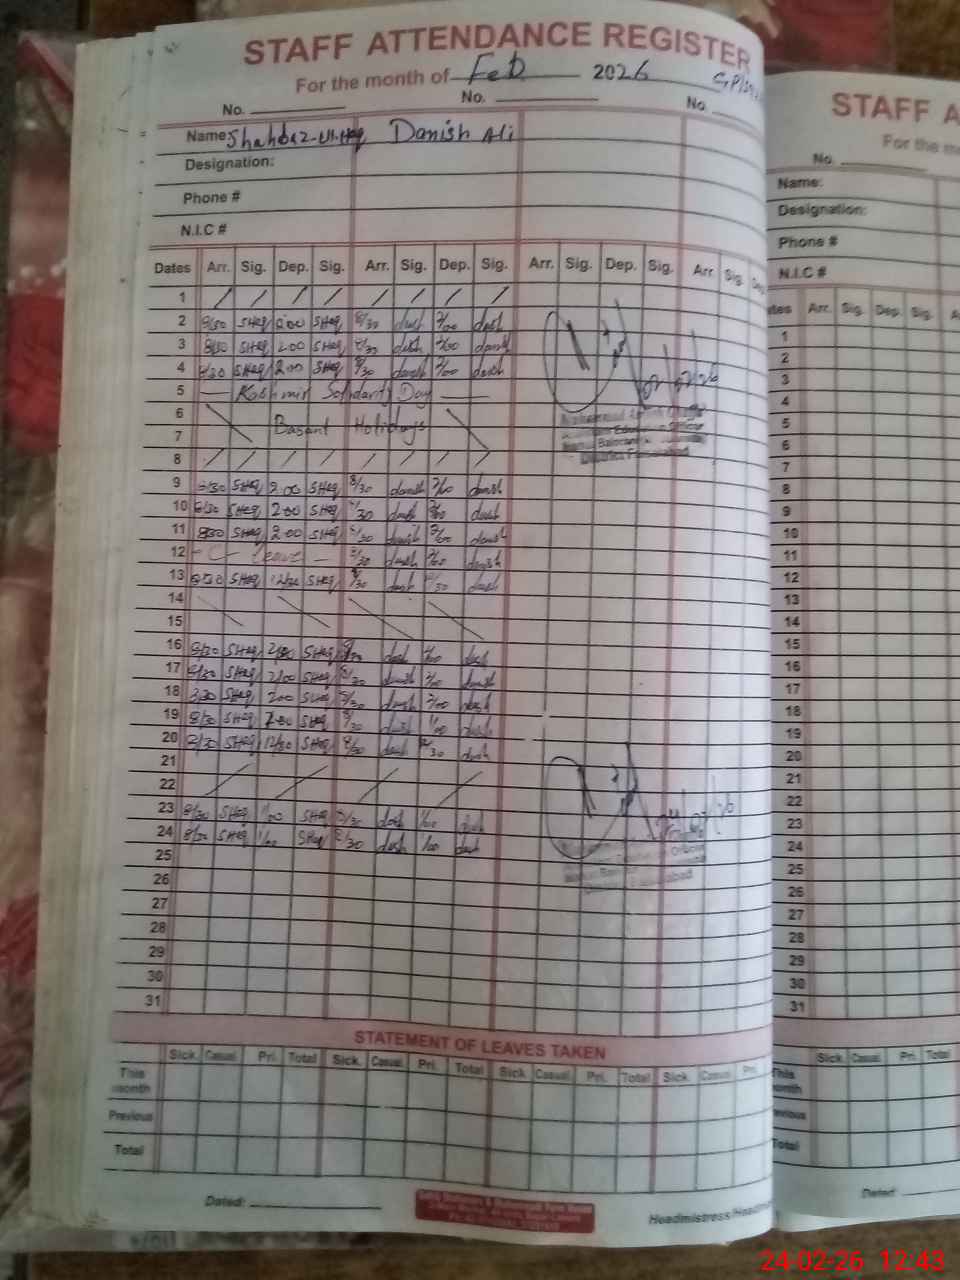 STAFF ATTENDANCE REGISTER
For the month of Feb 2026
No. No. No.
Name: Shahbaz-Ul-Haq Danish Ali
Designation:
Phone #
N.I.C #
Dates Arr. Sig. Dep. Sig. Arr. Sig. Dep. Sig. Arr. Sig. Dep. Sig. Arr. Sig. Dep.
1
2 8/30 SHaq 2:00 SHaq 8/30 dansh 2/00 dansh
3 8/30 SHaq 2:00 SHaq 8/30 dansh 2/00 dansh
4 8/30 SHaq 2:00 SHaq 8/30 dansh 2/00 dansh
5 Kashmir Solidarity Day
6
Basant Holidays
7
8
9 8/30 SHaq 2:00 SHaq 8/30 dansh 2/00 dansh
10 8/30 SHaq 2:00 SHaq 8/30 dansh 2/00 dansh
11 8/30 SHaq 2:00 SHaq 8/30 dansh 2/00 dansh
12 C Leave 8/30 dansh 2/00 dansh
13 8/30 SHaq 12/30 SHaq 8/30 dansh 12/30 dansh
14
15
16 8/30 SHaq 2/00 SHaq 8/30 dansh 2/00 dansh
17 8/30 SHaq 2/00 SHaq 8/30 dansh 2/00 dansh
18 8/30 SHaq 2:00 SHaq 8/30 dansh 2/00 dansh
19 8/30 SHaq SHaq 8/30 dansh 1/00 dansh
20 8/30 SHaq 12/30 SHaq 8/30 dansh 12/30 dansh
21
22
23 8/30 SHaq 1/00 SHaq 8/30 dansh 1/00 dansh
24 8/30 SHaq 1/00 SHaq 8/30 dansh 1/00 dansh
25
26
27
28
29
30
31
STATEMENT OF LEAVES TAKEN
Sick. Casual. Pri. Total Sick. Casual. Pri. Total Sick. Casual. Pri. Total Sick. Casual. Pri.
This month
Previous
Total
Dated:
Headmistress/Headm
STAFF A
For the m
No.
Name:
Designation:
Phone #
N.I.C #
tes Arr. Sig. Dep. Sig. A
1
2
3
4
5
6
7
8
9
10
11
12
13
14
15
16
17
18
19
20
21
22
23
24
25
26
27
28
29
30
31
Sick. Casual. Pri. Total
This month
Previous
Total
Dated:
24-02-26 12:43